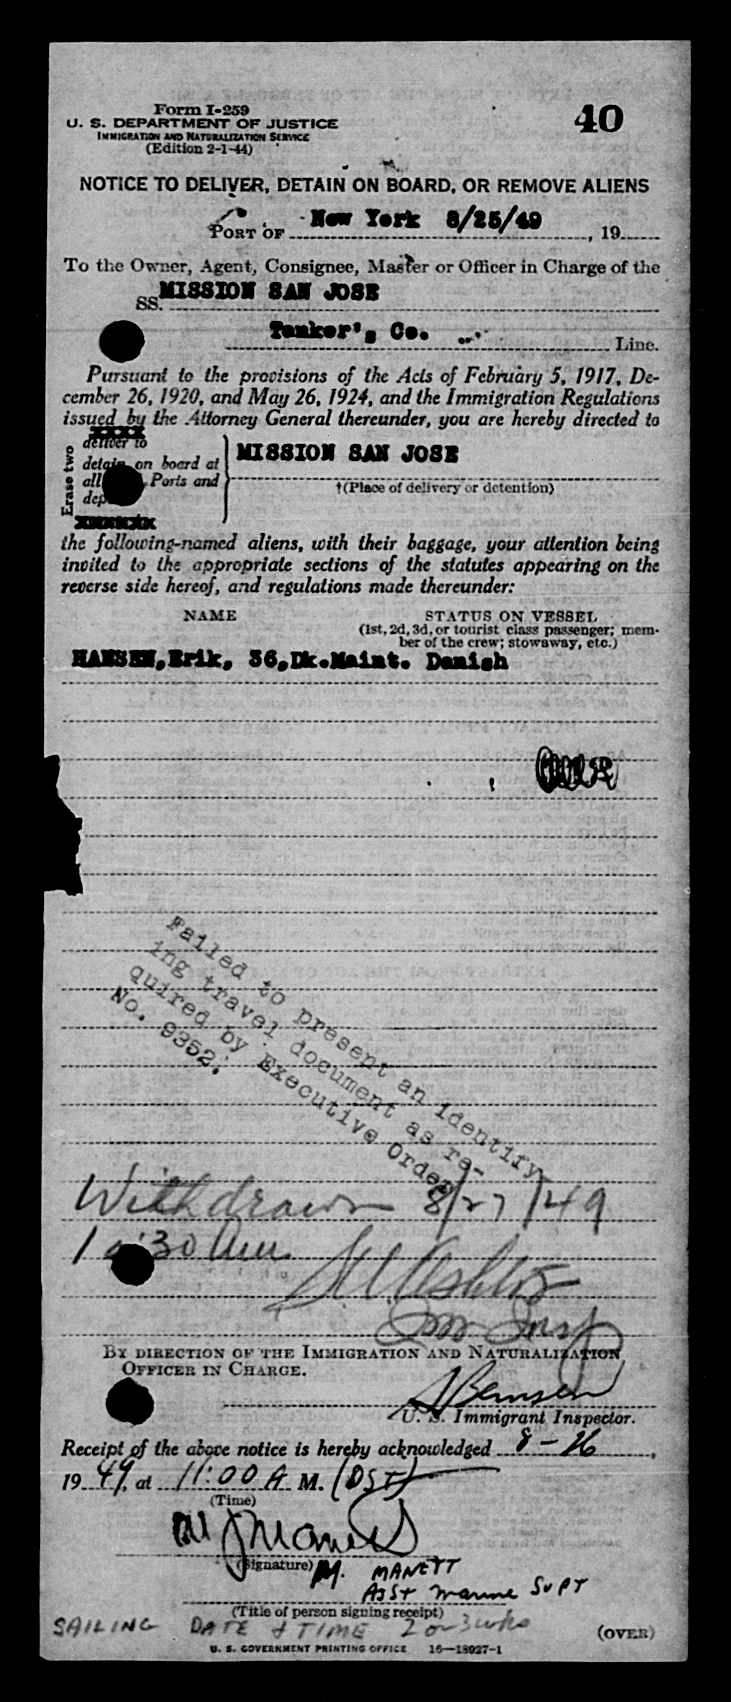 Form I-259
U. S. DEPARTMENT OF JUSTICE
IMMIGRATION AND NATURALIZATION SERVICE
(Edition 2-1-44)
40
NOTICE TO DELIVER, DETAIN ON BOARD, OR REMOVE ALIENS
PORT OF New York 8/25/49, 19
To the Owner, Agent, Consignee, Master or Officer in Charge of the
SS. MISSION SAN JOSE
Tanker's Co. Line.
Pursuant to the provisions of the Acts of February 5, 1917, De-
cember 26, 1920, and May 26, 1924, and the Immigration Regulations
issued by the Attorney General thereunder, you are hereby directed to
Erase two
deliver to
detain on board at
all Ports and
dep
MISSION SAN JOSE
†(Place of delivery or detention)
the following-named aliens, with their baggage, your attention being
invited to the appropriate sections of the statutes appearing on the
reverse side hereof, and regulations made thereunder:
NAME
STATUS ON VESSEL
(1st, 2d, 3d, or tourist class passenger; mem-
ber of the crew; stowaway, etc.)
HANSEN, Erik, 36, Dk.Maint. Danish
Failed to present an identify-
ing travel document as re-
quired by Executive Order
No. 9352.
Withdrawn 8/27/49
10:30 Am
Imm Insp
BY DIRECTION OF THE IMMIGRATION AND NATURALIZATION
OFFICER IN CHARGE.
U. S. Immigrant Inspector.
Receipt of the above notice is hereby acknowledged 8-26,
1949, at 11:00 A M. (DST)
(Time)
(Signature) M. MANETT
Asst marine SUPT
(Title of person signing receipt)
SAILING DATE & TIME 2 or 3 wks
(OVER)
U. S. GOVERNMENT PRINTING OFFICE 16—18927-1